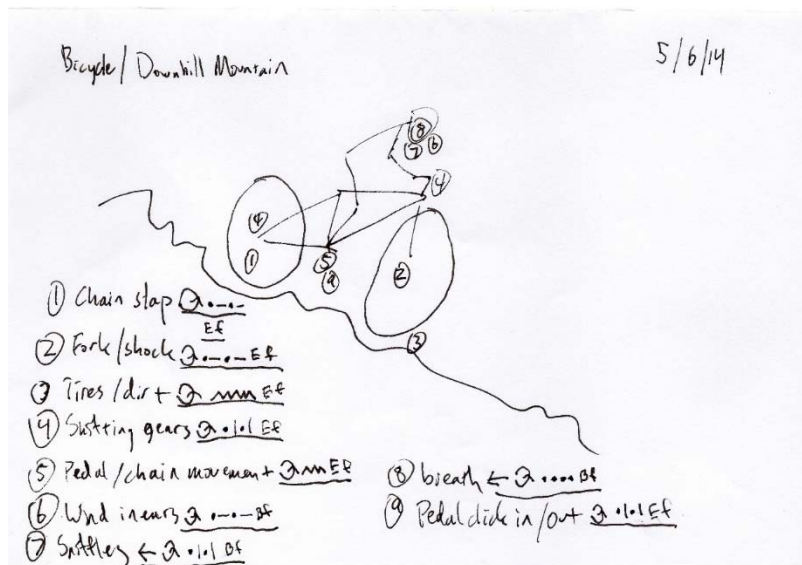 Bicycle/Downhill Mountain
5/6/14
8
7 6
4
4
1
5
9
2
3
1 Chain slap
Ef
2 Fork/shock Ef
3 Tires/dirt Ef
4 gears Ef
5 Pedal/chain movement Ef
6 Wind in ears Bf
7 Bf
8 breath ← Bf
9 Pedal click in/out Ef